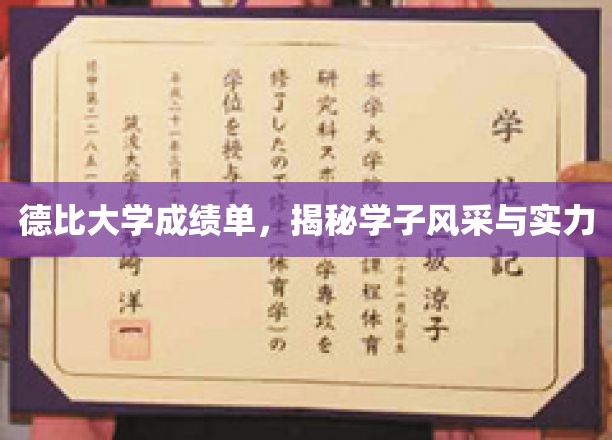 德比大学成绩单，揭秘学子风采与实力
学位記
坂涼子
本学大学院 士課程体育
研究科スポー 科学専攻を
修了したので修士(体育学)の
学位を授与す
平成二十一年三月二
筑波大学 岩崎洋一
修甲第二二八五一号